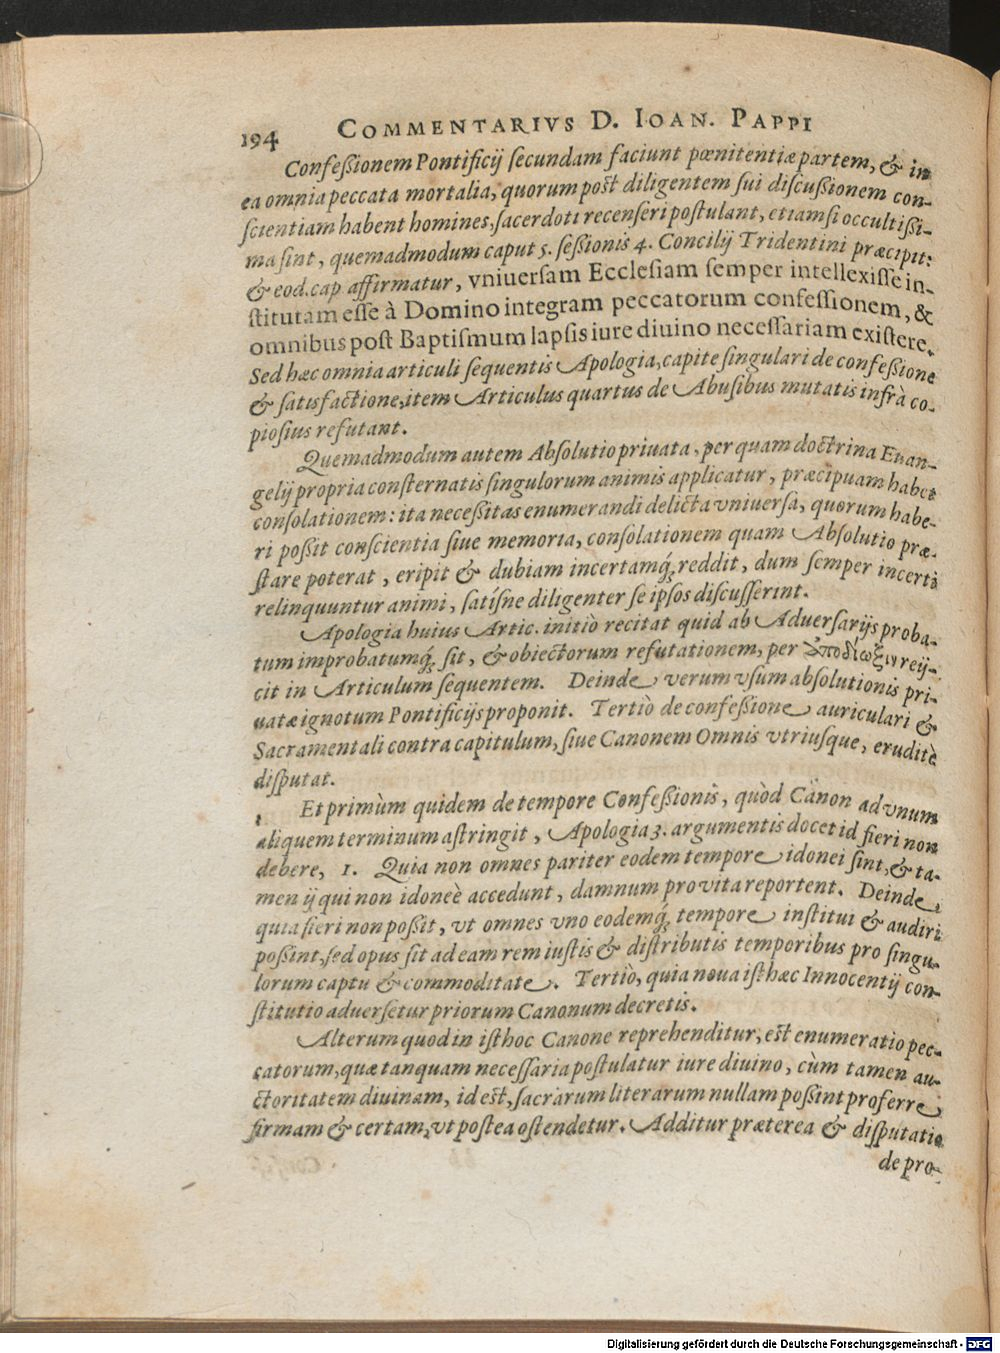 194 COMMENTARIVS D. IOAN. PAPPI
Confeßionem Pontificij ſecundam faciunt pœnitentiæ partem, & in
ea omnia peccata mortalia, quorum poſt diligentem ſui diſcußionem con-
ſcientiam habent homines, ſacerdoti recenſeri poſtulant, etiamſi occultißi-
ma ſint, quemadmodum caput 5. ſeßionis 4. Concilij Tridentini præcipit:
& eod. cap affirmatur, vniuerſam Eccleſiam ſemper intellexiſſe in-
ſtitutam eſſe à Domino integram peccatorum confeſſionem, &
omnibus poſt Baptiſmum lapſis iure diuino neceſſariam exiſtere.
Sed hæc omnia articuli ſequentis Apologia, capite ſingulari de confeßione
& ſatisfactione, item Articulus quartus de Abuſibus mutatis infrà co-
pioſius refutant.
Quemadmodum autem Abſolutio priuata, per quam doctrina Euan-
gelij propria conſternatis ſingulorum animis applicatur, præcipuam habet
conſolationem: ita neceßitas enumerandi delicta vniuerſa, quorum habe-
ri poßit conſcientia ſiue memoria, conſolationem quam Abſolutio præ-
ſtare poterat, eripit & dubiam incertamq́; reddit, dum ſemper incerti
relinquuntur animi, ſatíſne diligenter ſe ipſos diſcuſſerint.
Apologia huius Artic. initiò recitat quid ab Aduerſarijs proba-
tum improbatumq́; ſit, & obiectorum refutationem, per ἀποδίωξιν reij-
cit in Articulum ſequentem. Deinde verum vſum abſolutionis pri-
uatæ ignotum Pontificijs proponit. Tertiò de confeßione auriculari &
Sacramentali contra capitulum, ſiue Canonem Omnis vtriuſque, eruditè
diſputat.
Et primùm quidem de tempore Confeßionis, quòd Canon ad vnum
aliquem terminum aſtringit, Apologia 3. argumentis docet id fieri non
debere, 1. Quia non omnes pariter eodem tempore idonei ſint, & ta-
men ij qui non idoneè accedunt, damnum pro vita reportent. Deinde,
quia fieri non poßit, vt omnes vno eodemq́; tempore inſtitui & audiri
poßint, ſed opus ſit ad eam rem iuſtis & diſtributis temporibus pro ſingu-
lorum captu & commoditate. Tertiò, quia noua iſthæc Innocentij con-
ſtitutio aduerſetur priorum Canonum decretis.
Alterum quod in iſthoc Canone reprehenditur, eſt enumeratio pec-
catorum, quæ tanquam neceſſaria poſtulatur iure diuino, cùm tamen au-
ctoritatem diuinam, id eſt, ſacrarum literarum nullam poßint proferre
firmam & certam, vt poſtea oſtendetur. Additur præterea & diſputatio
de pro-
Digitalisierung gefördert durch die Deutsche Forschungsgemeinschaft - DFG